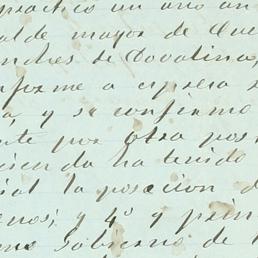 practicó en uno an
alde mayor de Que
ndres de Dovalina,
nforme a espresa
a, y se conforme
te por otra pos
cienda ha tenido
ial la posecion d
enos; y 4º y prin
smo Gobierno de